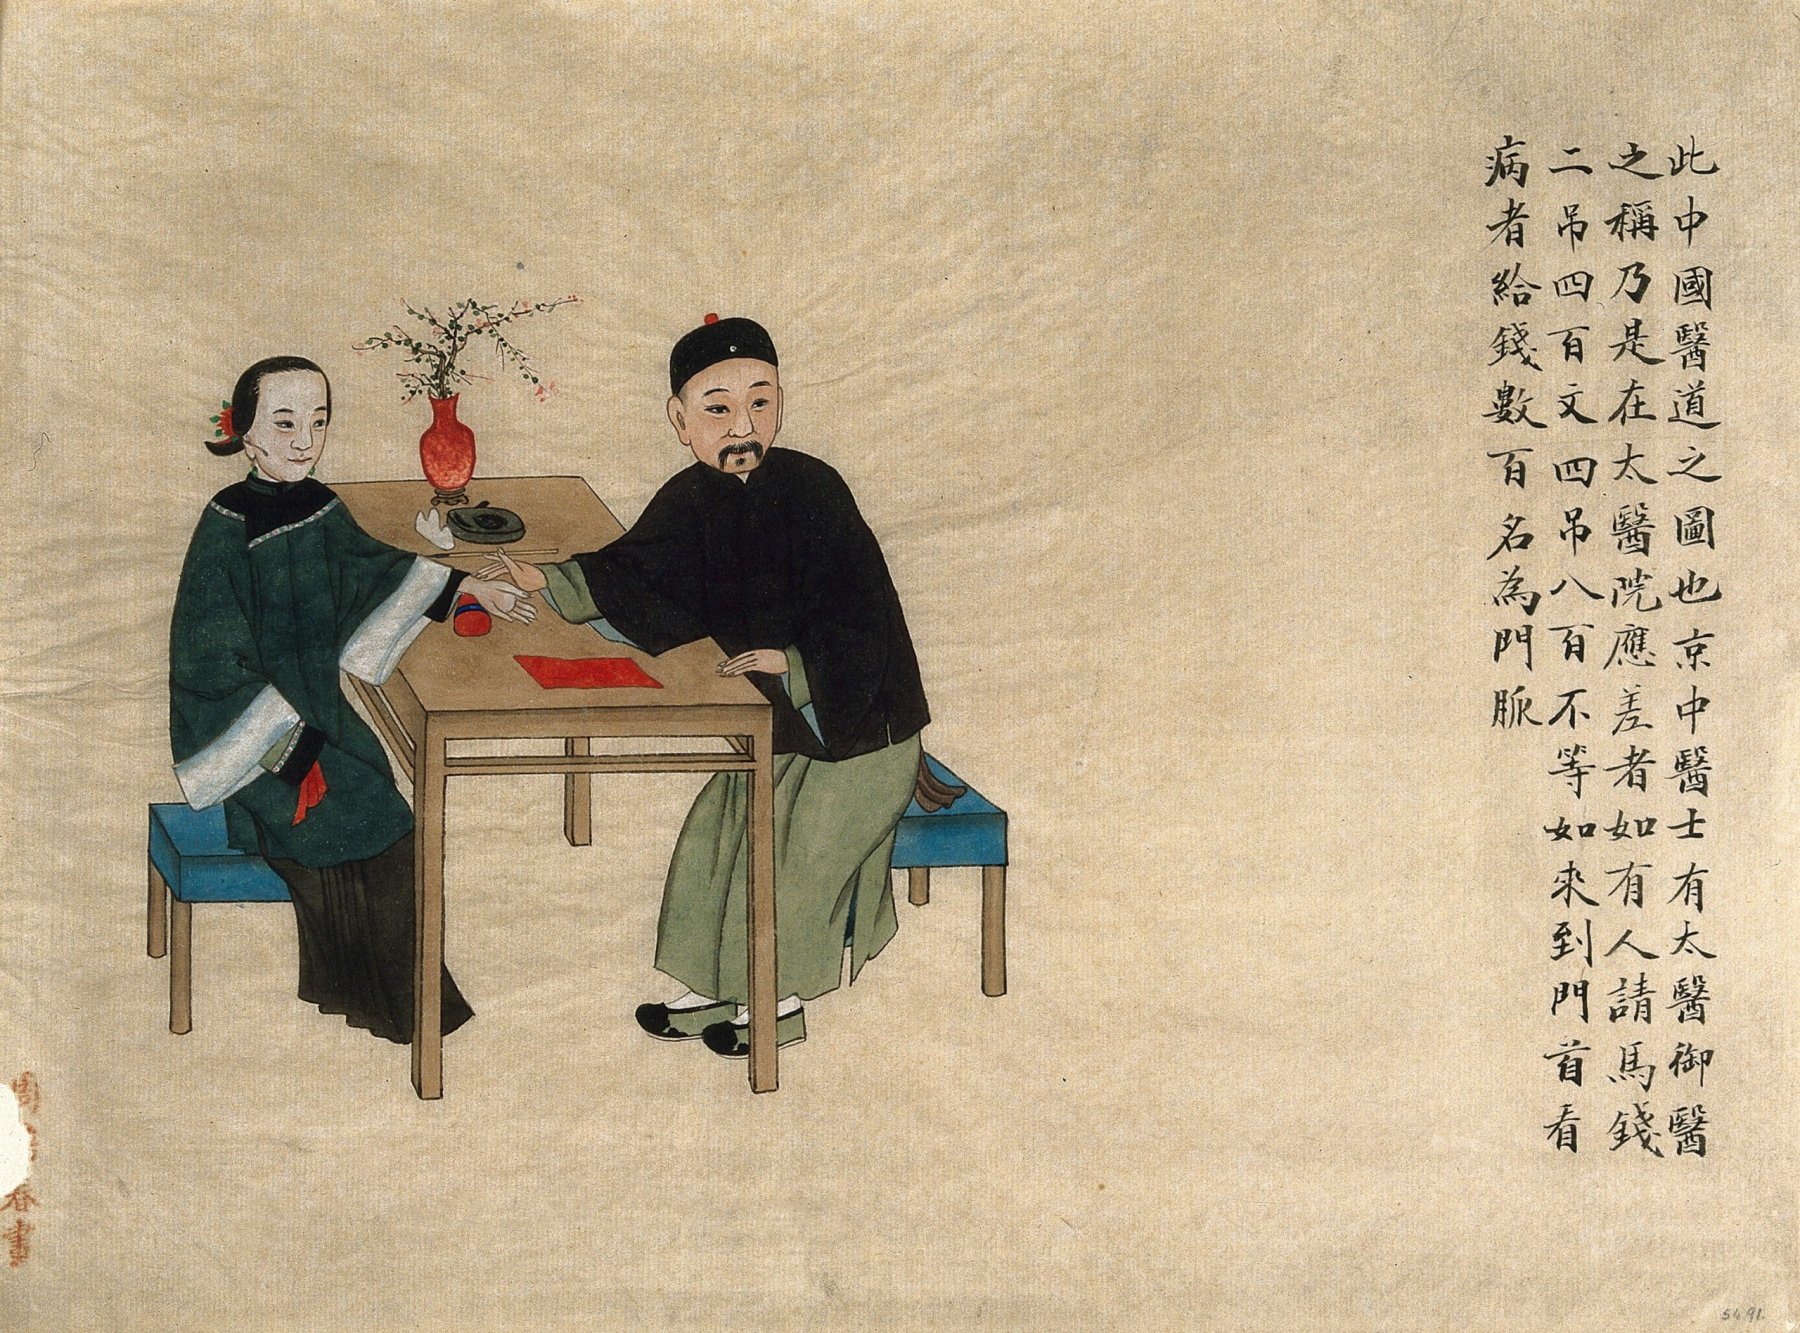 此中國醫道之圖也京中醫士有太醫御醫
之稱乃是在太醫院應差者如有人請馬錢
二吊四百文四吊八百不等如來到門首看
病者給錢數百名為門脈
周
春書
5491.